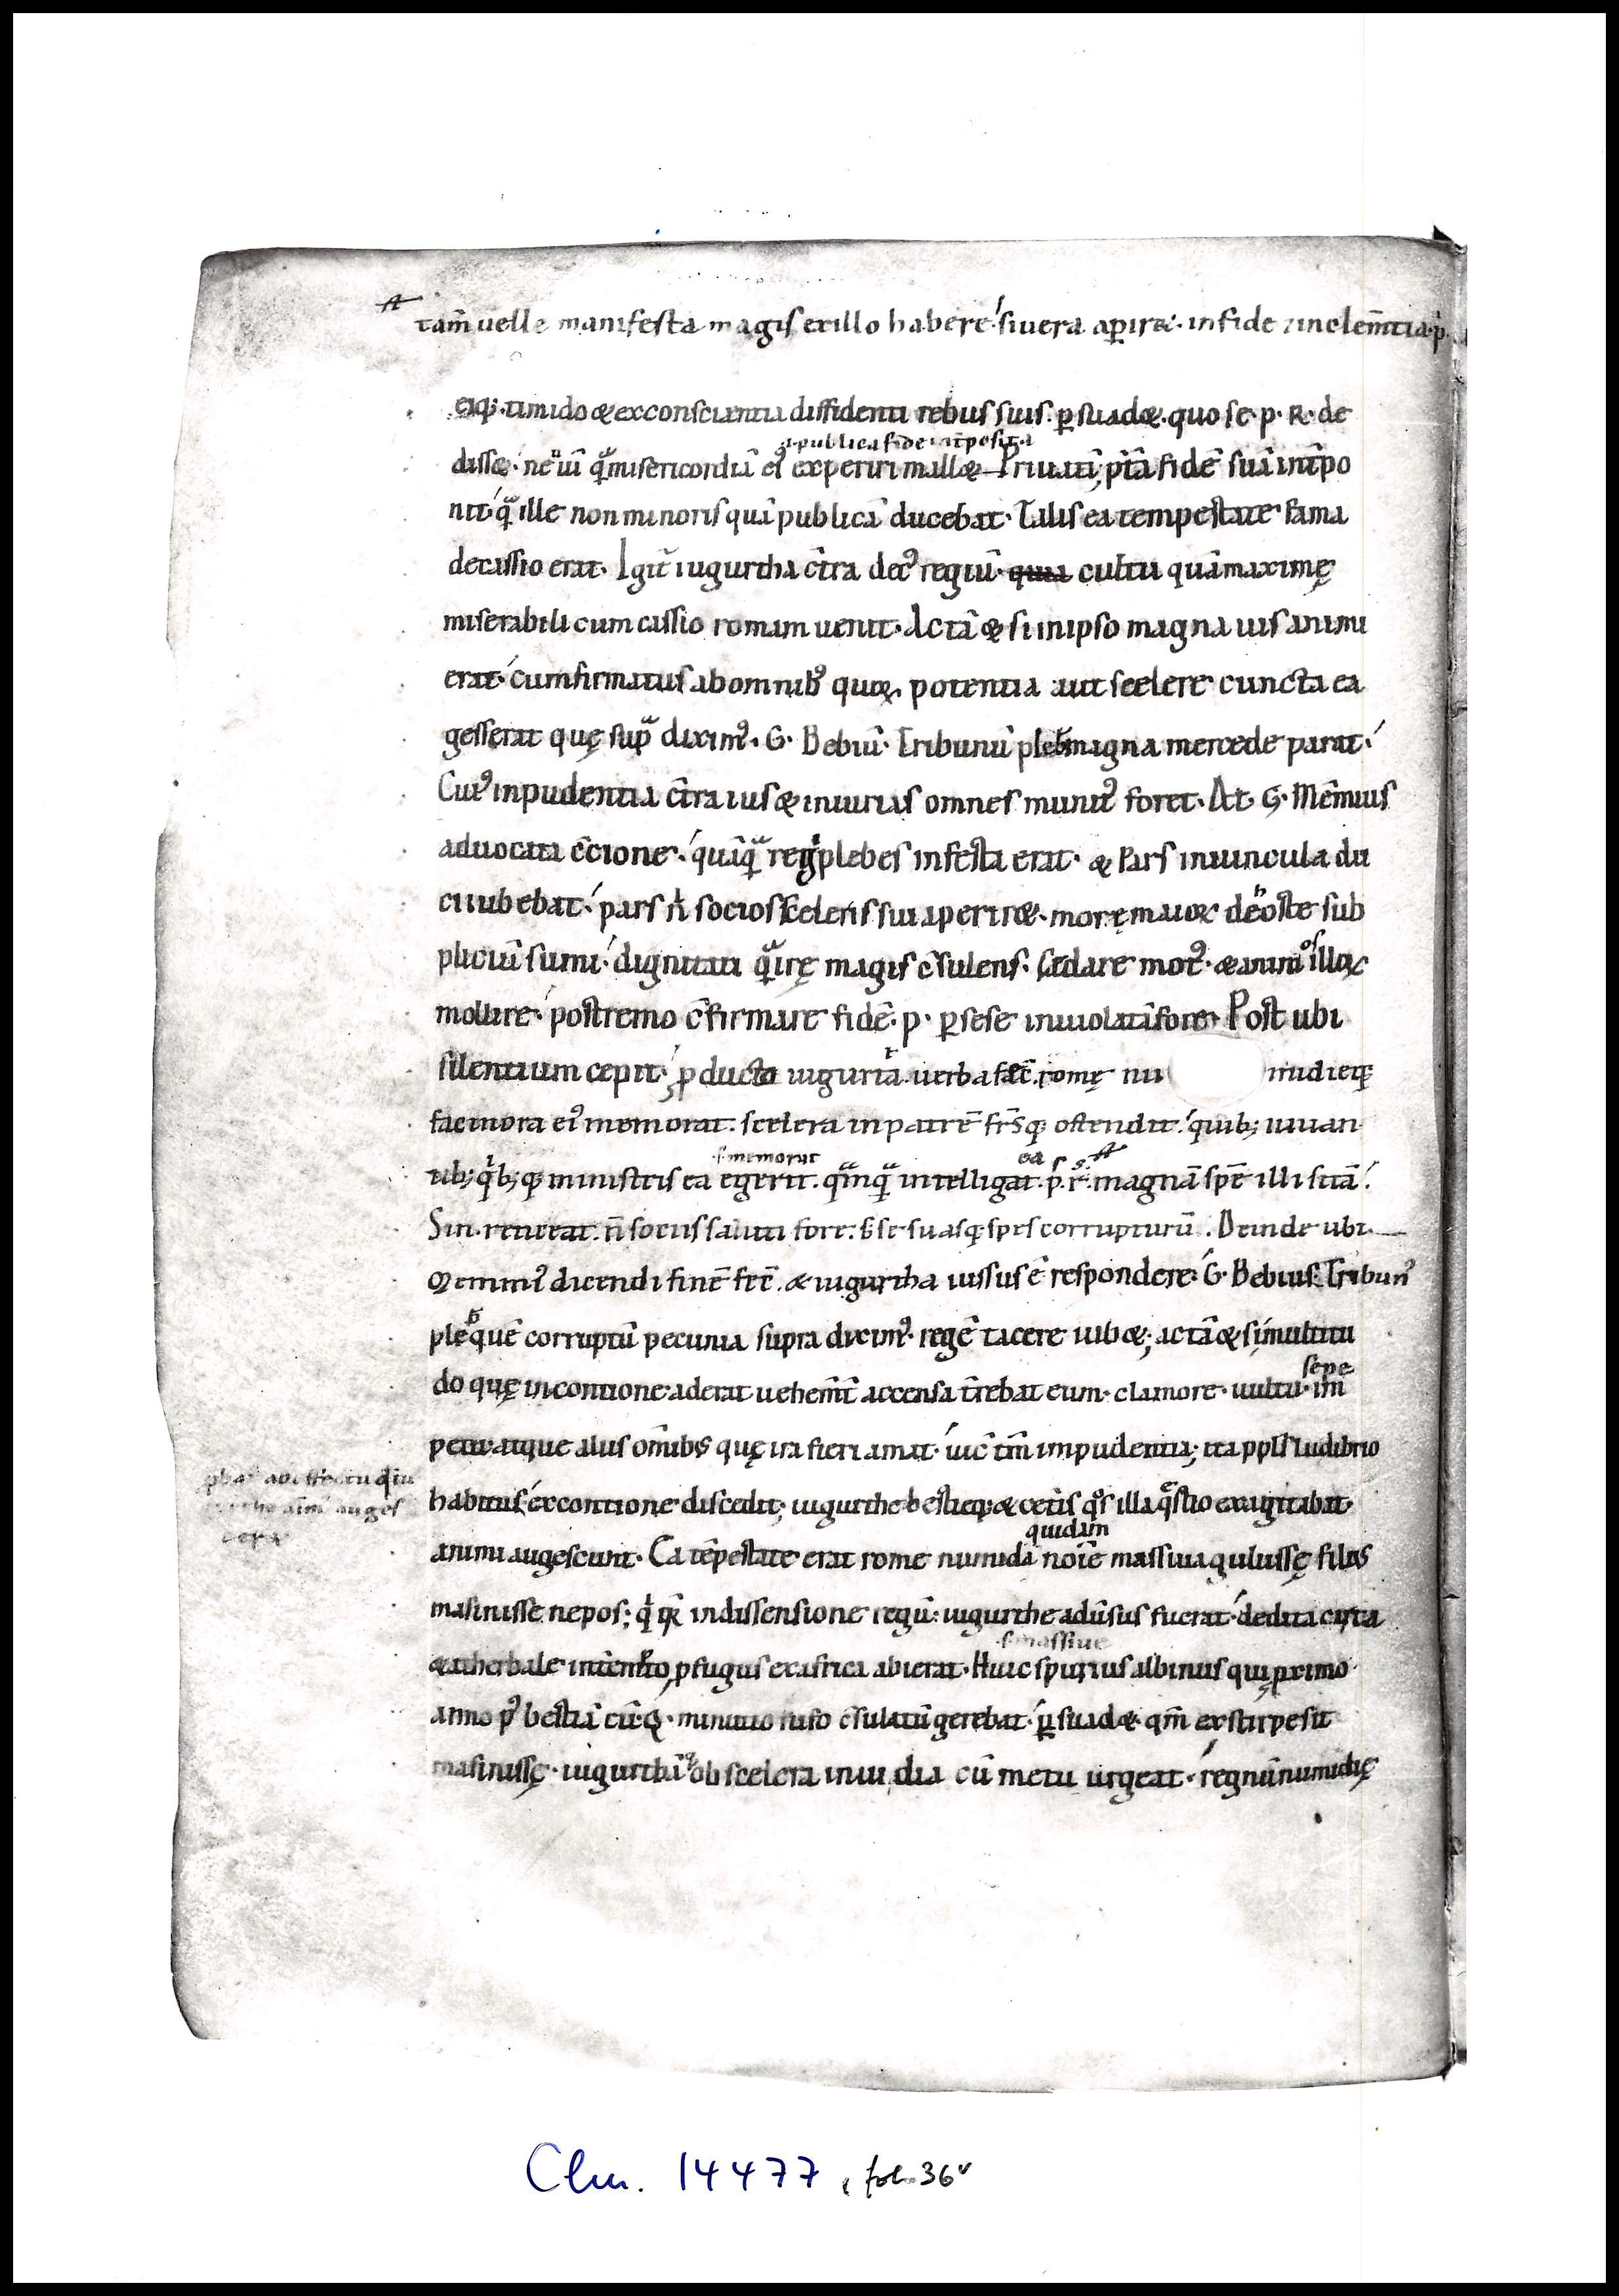 tam̄ uelle manifesta magis ex illo habere. si uera aperir&. in fide & inclem̄tia p.
eiq; timido & ex conscientia diffidenti rebus suis. ꝑsuad&. quo se. p. R. de
.i. publica fide int̄posita
diss&. ne uim̄ q̄ misericordiā ei' experiri mall&. Priuatī; p̄tā fidē suā int̄po
nit. q̄ ille non minoris quā publicā ducebat. Talis ea tempestate fama
decassio erat. Igit̄ iugurtha c̄tra dec' regiū. qua cultu quā maximę
miserabili cum cassio romam uenit. Ac tā & si in ipso magna uis animi
erat. cumfirmatus ab omnib' quoꝝ potentia aut scelere cuncta ea
gesserat quę sup̄ dixim'. G. Bebiū. Tribunū pleb magna mercede parat.
Cui' inpudentia c̄tra ius & iniurias omnes munit' foret. At. G. Mēmius
aduocata c̄cione. quāq̄ regi plebes infesta erat. & Pars in uincula du
ci iubebat. pars n̄ socios sceleris sui aperir&. morę maioꝝ de hoste sub
pliciū sumi. dignitati q̄ irę magis c̄sulens. sedare mot'. & animos illoꝝ
mollire. postremo c̄firmare fidē. p. ꝑ sese inuiolatā fore. Post ubi
silentium cepit. ꝓducto iugurta. uerba fac̄. romę nu midieq;
facinora ei' memorat. scelera in patrē fr̄sq; ostendit. quib; iuuan
.s. memorat
ea
tib; q'b; q; ministris ea egerit. q̄mq̄ intelligat. p. r. magnā spē illi sitā.
Sin. reticeat. n̄ sociis saluti fore. s; se suasq; spes corrupturū. Deinde ubi
Memmi' dicendi finē fec̄. & iugurtha iussus ē respondere. G. Bebius. Tribun'
pleb quē corruptū pecunia supra dixim'. regē tacere iub&; ac tā & si multitu
sepe
do quę in contione aderat uehem̄t̄ accensa t̄rebat eum. clamore. uultu. im̄
petu. atque aliis om̄ibs quę ira fieri amat. uic̄ tm̄ impudentia; ita ppl's ludibrio
habitus ex contione discedit; iugurthe bestieq; & cet̄is q's illa q̄stio exagitabat
quidam
animi augescunt. Ea tēpestate erat rome numida noīe massiua gulussę filius
masinisse nepos; q' q̄ in dissensione regū. iugurthe aduersus fuerat. dedita cirta
.s. massiue
& atherbale intēnfecto ꝓfugus ex africa abierat. Huic spurius albinus qui ꝓximo
anno p' bestiā cū. Q. minutio rufo c̄sulatū gerebat. ꝑsuad&. qm̄ ex stirpe sit
masinissę. iugurthāq; ob scelera inuidia cū metu urgeat. regnū numidię
Clm. 14477, fol. 36v